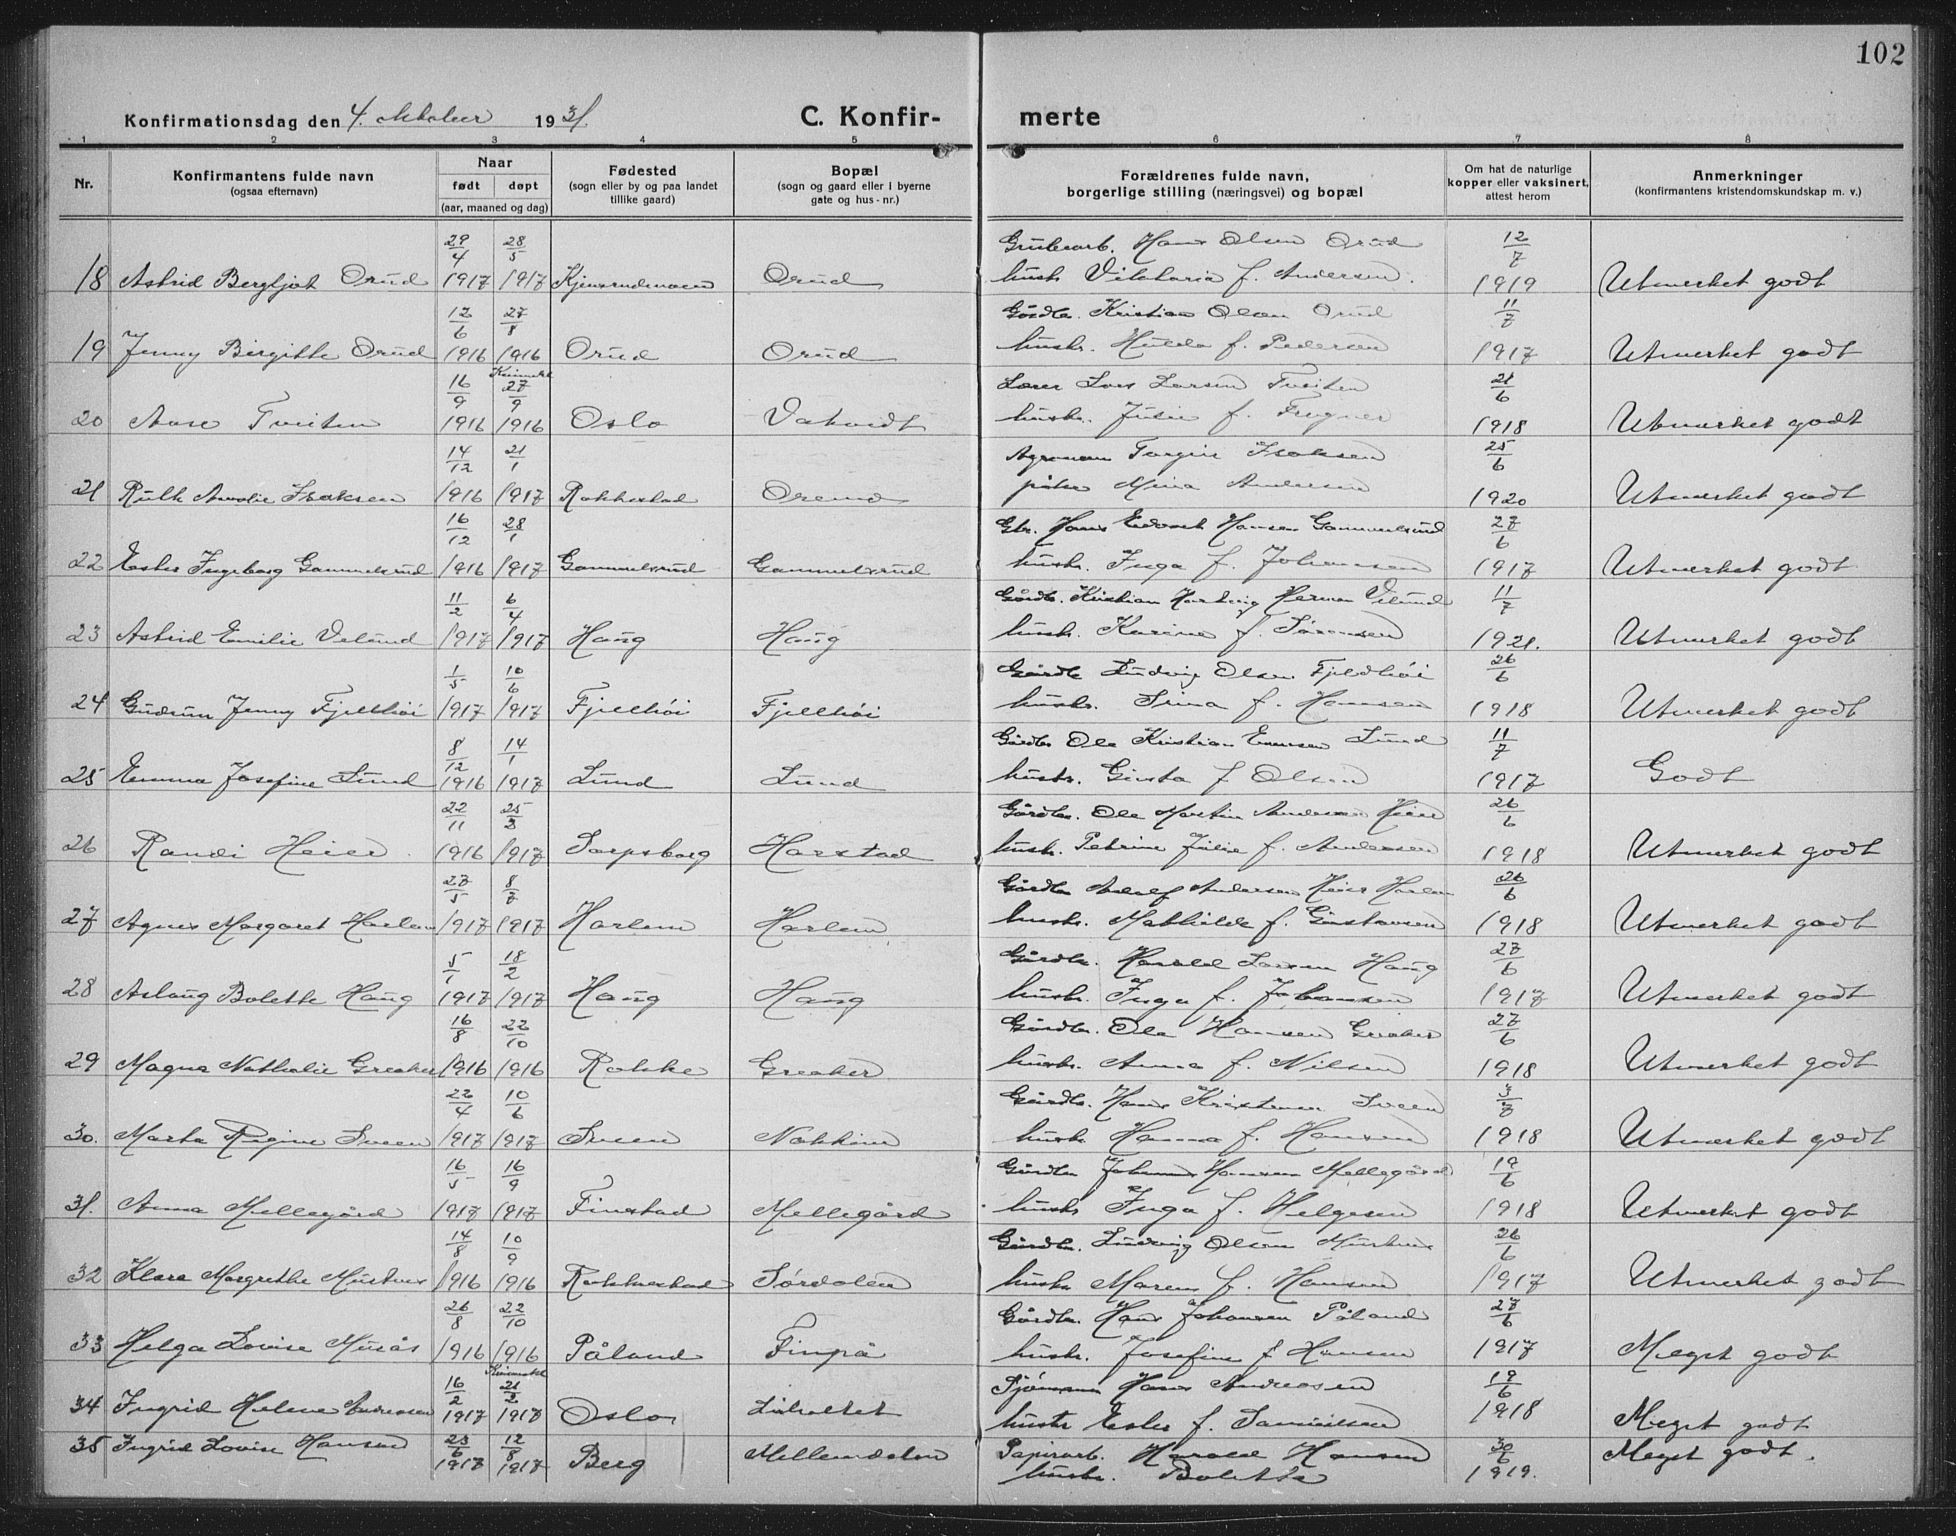 102
Konfirmationsdag den 4. oktober 1931
C. Konfir- merte
1 2 3 4 5 6 7 8
Nr.
Konfirmantens fulde navn
(ogsaa efternavn)
Naar
født døpt
(aar, maaned og dag)
Fødested
(sogn eller by og paa landet
tillike gaard)
Bopæl
(sogn og gaard eller i byerne
gate og hus-nr.)
Forældrenes fulde navn,
borgerlige stilling (næringsvei) og bopæl
Om hat de naturlige
kopper eller vaksinert,
attest herom
Anmerkninger
(konfirmantens kristendomskundskap m. v.)
29/4 28/5 Grubearb. Hans Olsen Orud 12/7
18 Astrid Bergljot Orud 1917 1917 Orud hustr. Viktoria f. Andersen. 1919 Utmerket godt
12/6 27/8 Gårdbr. Kristian Olsen Orud 11/7
19 Jenny Birgitte Orud 1916 1916 Orud Orud hustr. Hulda f. Pedersen 1917 Utmerket godt
16/9 27/9 Lærer Lars Larsen Tveiten 21/6
20 Aase Tveiten 1916 1916 Oslo hustr. f. 1918 Utmerket godt
14/12 21/1 Agronom Isaksen 25/6
21 Ruth Amalie Isaksen 1916 1917 Rakkestad Mina Andersen 1920 Utmerket godt
16/12 28/1 Gbr. Hans Edvart Hansen Gammelsrud 27/6
22 Ester Ingeborg Gammelsrud 1916 1917 Gammelsrud Gammelsrud hustr. Inga f. Johansen 1917 Utmerket godt
11/2 6/4 Gårdb. Kristian Hartvig Herman 11/7
23 Astrid Emilie 1917 1917 Haug Haug hustr. Karine f. Sørensen 1921. Utmerket godt
1/5 10/6 Gårdb Ludvig Olsen Fjeldhöi 26/6
24 Gudrun Jenny Fjellhöi 1917 1917 Fjellhöi Fjellhöi hustr. f. Hansen 1918 Utmerket godt
8/12 14/1 Gårdbr Ole Kristian Evensen Lund 11/7
25 Emma Josefine Lund 1916 1917 Lund Lund hustr. Gusta f Olsen 1917 Godt
22/11 25/3 Gårdbr. Ole Martin Andersen Heier 26/6
26 Randi Heier 1916 1917 Sarpsborg Harstad hustr. Petrine Julie f. Andersen 1918 Utmerket godt
27/5 8/7 Gårdbr Adolf Andersen Heier 26/6
27 Agnes Margaret Harlem 1917 1917 Harlem Harlem hustr. Mathilde f. Gustavsen 1918 Utmerket godt
5/1 18/2 Gårdbr. Harald Larsen Haug 27/6
28 Aslaug Bolette Haug 1917 1917 Haug Haug hustr. Inga f. Johansen 1917 Utmerket godt
16/8 22/10 Gårdbr. Ole Hansen Greaker 27/6
29 Magna Nathalie Greaker 1916 1916 Rokke Greaker hustr. Anna f. Nilsen 1918 Utmerket godt
22/4 10/6 Gårdbr. Hans Kristensen Sveen 3/7
30. Marta Regine Sveen 1917 1917 Sveen hustr. Hanna f. Hansen 1918 Utmerket godt
16/5 16/9 Gårdbr Johannes Hansen Mellegård 19/6
31. Anna Mellegård 1917 1917 Finstad Mellegård hustr Inga f. Helgesen 1918 Utmerket godt
14/8 10/9 Gårdbr. Ludvig Olsen 26/6
32 Klara Margrethe 1916 1916 Rakkestad Sørdalen hustr Maren f. Hansen 1917 Utmerket godt
26/8 22/10 Gårdbr. Hans Johansen Påland 27/6
33 Helga Lovise Musås 1916 1916 Påland hustr. Josefine f Hansen 1917 Meget godt
16/2 21/2 Sjømann Hans Andreasen 19/6
34 Ingrid Helene Andreasen 1917 1917 Oslo hustr Ester f. Samuelsen 1918 Meget godt
35 Ingrid Lovise Hansen 23/6 1917 12/8 1917 Berg Mellemdalen Papirarb. Harald Hansen 30/6 Meget godt.
hustr. Bolette 1919.